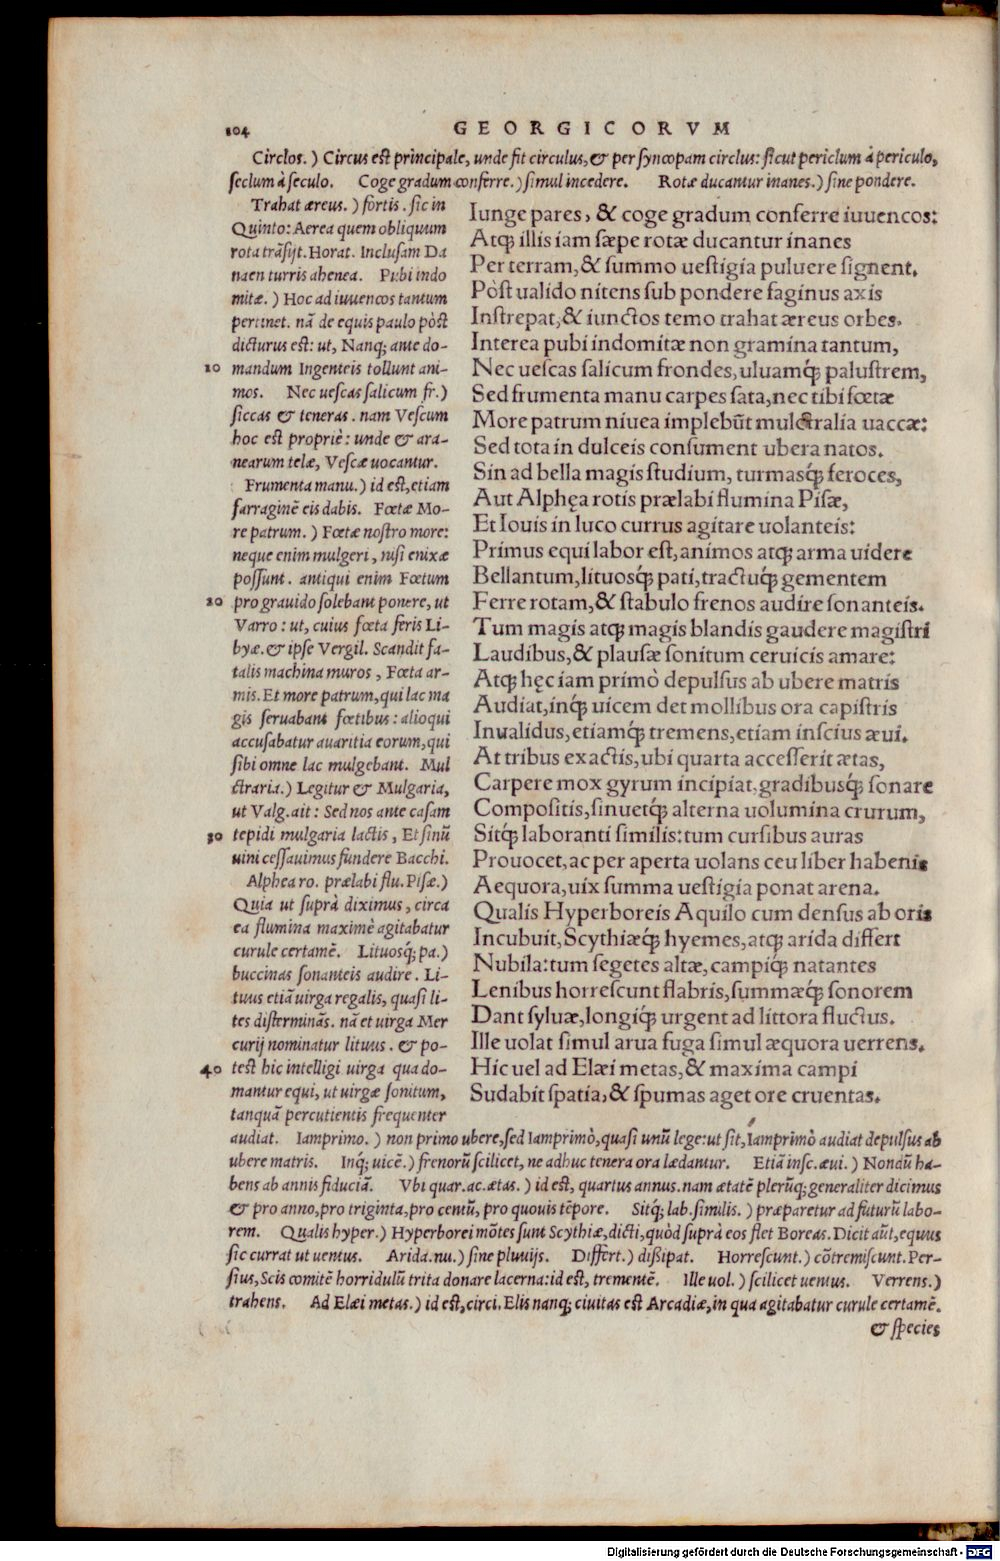 104 GEORGICORVM
Circlos.) Circus est principale, unde fit circulus, & per syncopam circlus: sicut periclum à periculo,
seclum à seculo. Coge gradum conferre.) simul incedere. Rotæ ducantur inanes.) sine pondere.
Trahat æreus.) fortis. sic in
Quinto: Aerea quem obliquum
rota trãsijt. Horat. Inclusam Da
naen turris ahenea. Pubi indo
mitæ.) Hoc ad iuuencos tantum
pertinet. nã de equis paulo pòst
dicturus est: ut, Nanq; ante do-
10 mandum Ingenteis tollunt ani-
mos. Nec uescas salicum fr.)
siccas & teneras. nam Vescum
hoc est propriè: unde & ara-
nearum telæ, Vescæ uocantur.
Frumenta manu.) id est, etiam
farraginẽ eis dabis. Fœtæ Mo-
re patrum.) Fœtæ nostro more:
neque enim mulgeri, nisi enixæ
possunt. antiqui enim Fœtum
20 pro grauido solebant ponere, ut
Varro: ut, cuius fœta feris Li-
byæ. & ipse Vergil. Scandit fa-
talis machina muros, Fœta ar-
mis. Et more patrum, qui lac ma
gis seruabant fœtibus: alioqui
accusabatur auaritia eorum, qui
sibi omne lac mulgebant. Mul
ctraria.) Legitur & Mulgaria,
ut Valg. ait: Sed nos ante casam
30 tepidi mulgaria lactis, Et sinũ
uini cessauimus fundere Bacchi.
Alphea ro. prælabi flu. Pisæ.)
Quia ut suprà diximus, circa
ea flumina maximè agitabatur
curule certamẽ. Lituosq; pa.)
buccinas sonanteis audire. Li-
tuus etiã uirga regalis, quasi li-
tes disterminãs. nã et uirga Mer
curij nominatur lituus. & po-
40 test hic intelligi uirga qua do-
mantur equi, ut uirgæ sonitum,
tanquã percutientis frequenter
Iunge pares, & coge gradum conferre iuuencos:
Atq; illis iam sæpe rotæ ducantur inanes
Per terram, & summo uestigia puluere signent.
Pòst ualido nitens sub pondere faginus axis
Instrepat, & iunctos temo trahat æreus orbes.
Interea pubi indomitæ non gramina tantum,
Nec uescas salicum frondes, uluamq́; palustrem,
Sed frumenta manu carpes sata, nec tibi fœtæ
More patrum niuea implebũt mulctralia uaccæ:
Sed tota in dulceis consument ubera natos.
Sin ad bella magis studium, turmasq́; feroces,
Aut Alphęa rotis prælabi flumina Pisæ,
Et Iouis in luco currus agitare uolanteis:
Primus equi labor est, animos atq; arma uidere
Bellantum, lituosq́; pati, tractuq́; gementem
Ferre rotam, & stabulo frenos audire sonanteis.
Tum magis atq; magis blandis gaudere magistri
Laudibus, & plausæ sonitum ceruicis amare:
Atq; hęc iam primò depulsus ab ubere matris
Audiat, inq́; uicem det mollibus ora capistris
Inualidus, etiamq́; tremens, etiam inscius æui.
At tribus exactis, ubi quarta accesserit ætas,
Carpere mox gyrum incipiat, gradibusq́; sonare
Compositis, sinuetq́; alterna uolumina crurum,
Sitq́; laboranti similis: tum cursibus auras
Prouocet, ac per aperta uolans ceu liber habenis
Aequora, uix summa uestigia ponat arena.
Qualis Hyperboreis Aquilo cum densus ab oris
Incubuit, Scythiæq́; hyemes, atq; arida differt
Nubila: tum segetes altæ, campiq́; natantes
Lenibus horrescunt flabris, summæq́; sonorem
Dant syluæ, longiq́; urgent ad littora fluctus.
Ille uolat simul arua fuga simul æquora uerrens.
Hic uel ad Elæi metas, & maxima campi
Sudabit spatia, & spumas aget ore cruentas.
audiat. Iamprimo.) non primo ubere, sed Iamprimò, quasi unũ lege: ut sit, Iamprimò audiat depulsus ab
ubere matris. Inq; uicẽ.) frenorũ scilicet, ne adhuc tenera ora lædantur. Etiã insc. æui.) Nondũ ha-
bens ab annis fiduciã. Vbi quar. ac. ætas.) id est, quartus annus. nam ætatẽ plerũq; generaliter dicimus
& pro anno, pro triginta, pro centũ, pro quouis tẽpore. Sitq́; lab. similis.) præparetur ad futurũ labo-
rem. Qualis hyper.) Hyperborei mõtes sunt Scythiæ, dicti, quòd suprà eos flet Boreas. Dicit aũt, equus
sic currat ut uentus. Arida. nu.) sine pluuijs. Differt.) dissipat. Horrescunt.) cõtremiscunt. Per-
sius, Scis comitẽ horridulũ trita donare lacerna: id est, trementẽ. Ille uol.) scilicet uentus. Verrens.)
trahens. Ad Elæi metas.) id est, circi. Elis nanq; ciuitas est Arcadiæ, in qua agitabatur curule certamẽ.
& species
Digitalisierung gefördert durch die Deutsche Forschungsgemeinschaft - DFG